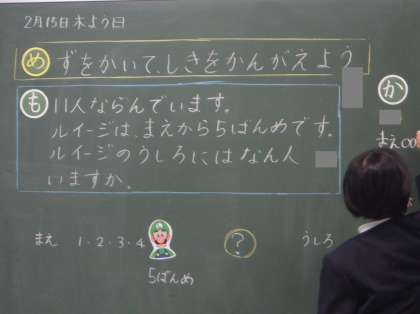 2月15日木よう日
め ずをかいて、しきをかんがえよう
も 11人ならんでいます。
ルイージは、まえから5ばんめです。
ルイージのうしろにはなん人
いますか。
か
まえ○○
まえ 1・2・3・4 ? うしろ
5ばんめ